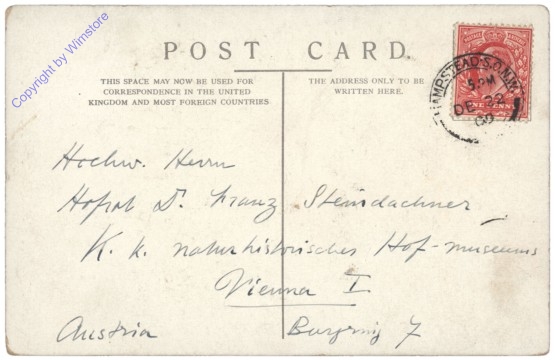 POST CARD.
THIS SPACE MAY NOW BE USED FOR
CORRESPONDENCE IN THE UNITED
KINGDOM AND MOST FOREIGN COUNTRIES
THE ADDRESS ONLY TO BE
WRITTEN HERE.
HAMPSTEAD S.O. N.W.
5 PM
DE 22
09
ONE PENNY
Hochw. Herrn
Hofrat Dr. Franz Steindachner
K. k. naturhistorisches Hof-museums
Vienna I
Austria Burgring 7
Copyright by Wimstore